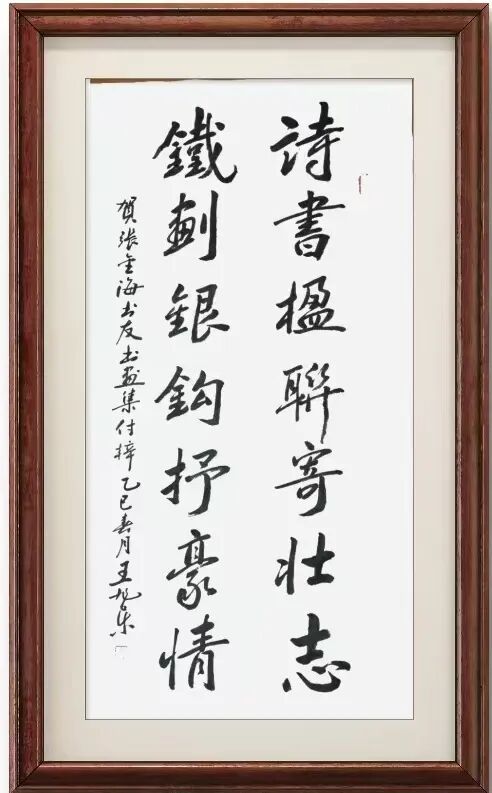 詩書楹聯寄壯志
鐵劃銀鈎抒豪情
賀張金海书友书画集付梓乙巳春月王旭东